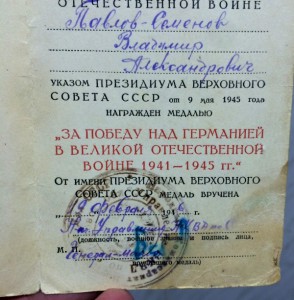 ОТЕЧЕСТВЕННОЙ ВОЙНЕ
Павлов-Семенов
Владимир
Александрович
УКАЗОМ ПРЕЗИДИУМА ВЕРХОВНОГО
СОВЕТА СССР от 9 мая 1945 года
НАГРАЖДЕН МЕДАЛЬЮ
„ЗА ПОБЕДУ НАД ГЕРМАНИЕЙ
В ВЕЛИКОЙ ОТЕЧЕСТВЕННОЙ
ВОЙНЕ 1941—1945 гг.“
От имени ПРЕЗИДИУМА ВЕРХОВНОГО
СОВЕТА СССР МЕДАЛЬ ВРУЧЕНА
9 февраля 194
М. П.
(должность, воинское звание и подпись лица,
вручившего медаль)